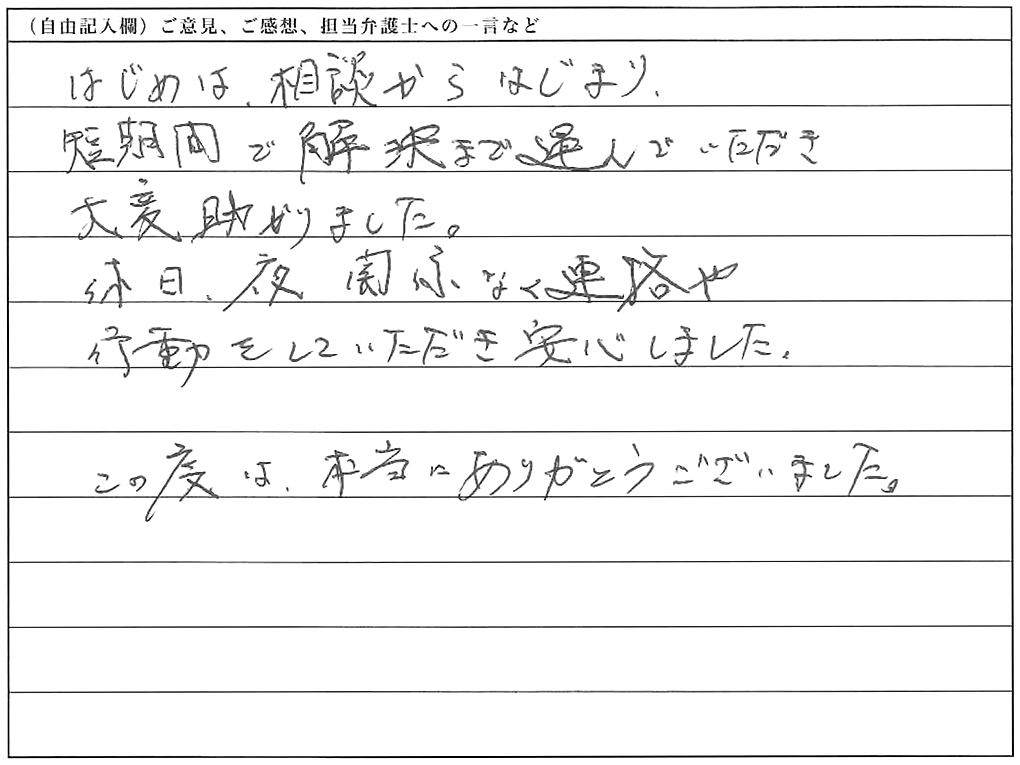 （自由記入欄）ご意見、ご感想、担当弁護士への一言など
はじめは、相談からはじまり、
短期間で解決まで運んでいただき
大変助かりました。
休日、夜関係なく連絡や
行動をしていただき安心しました。
この度は、本当にありがとうございました。